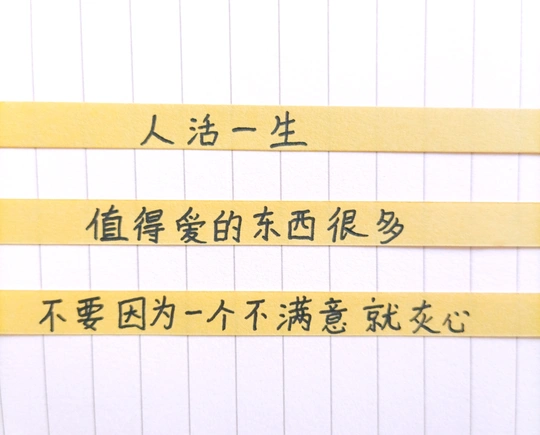 人活一生
值得爱的东西很多
不要因为一个不满意就灰心